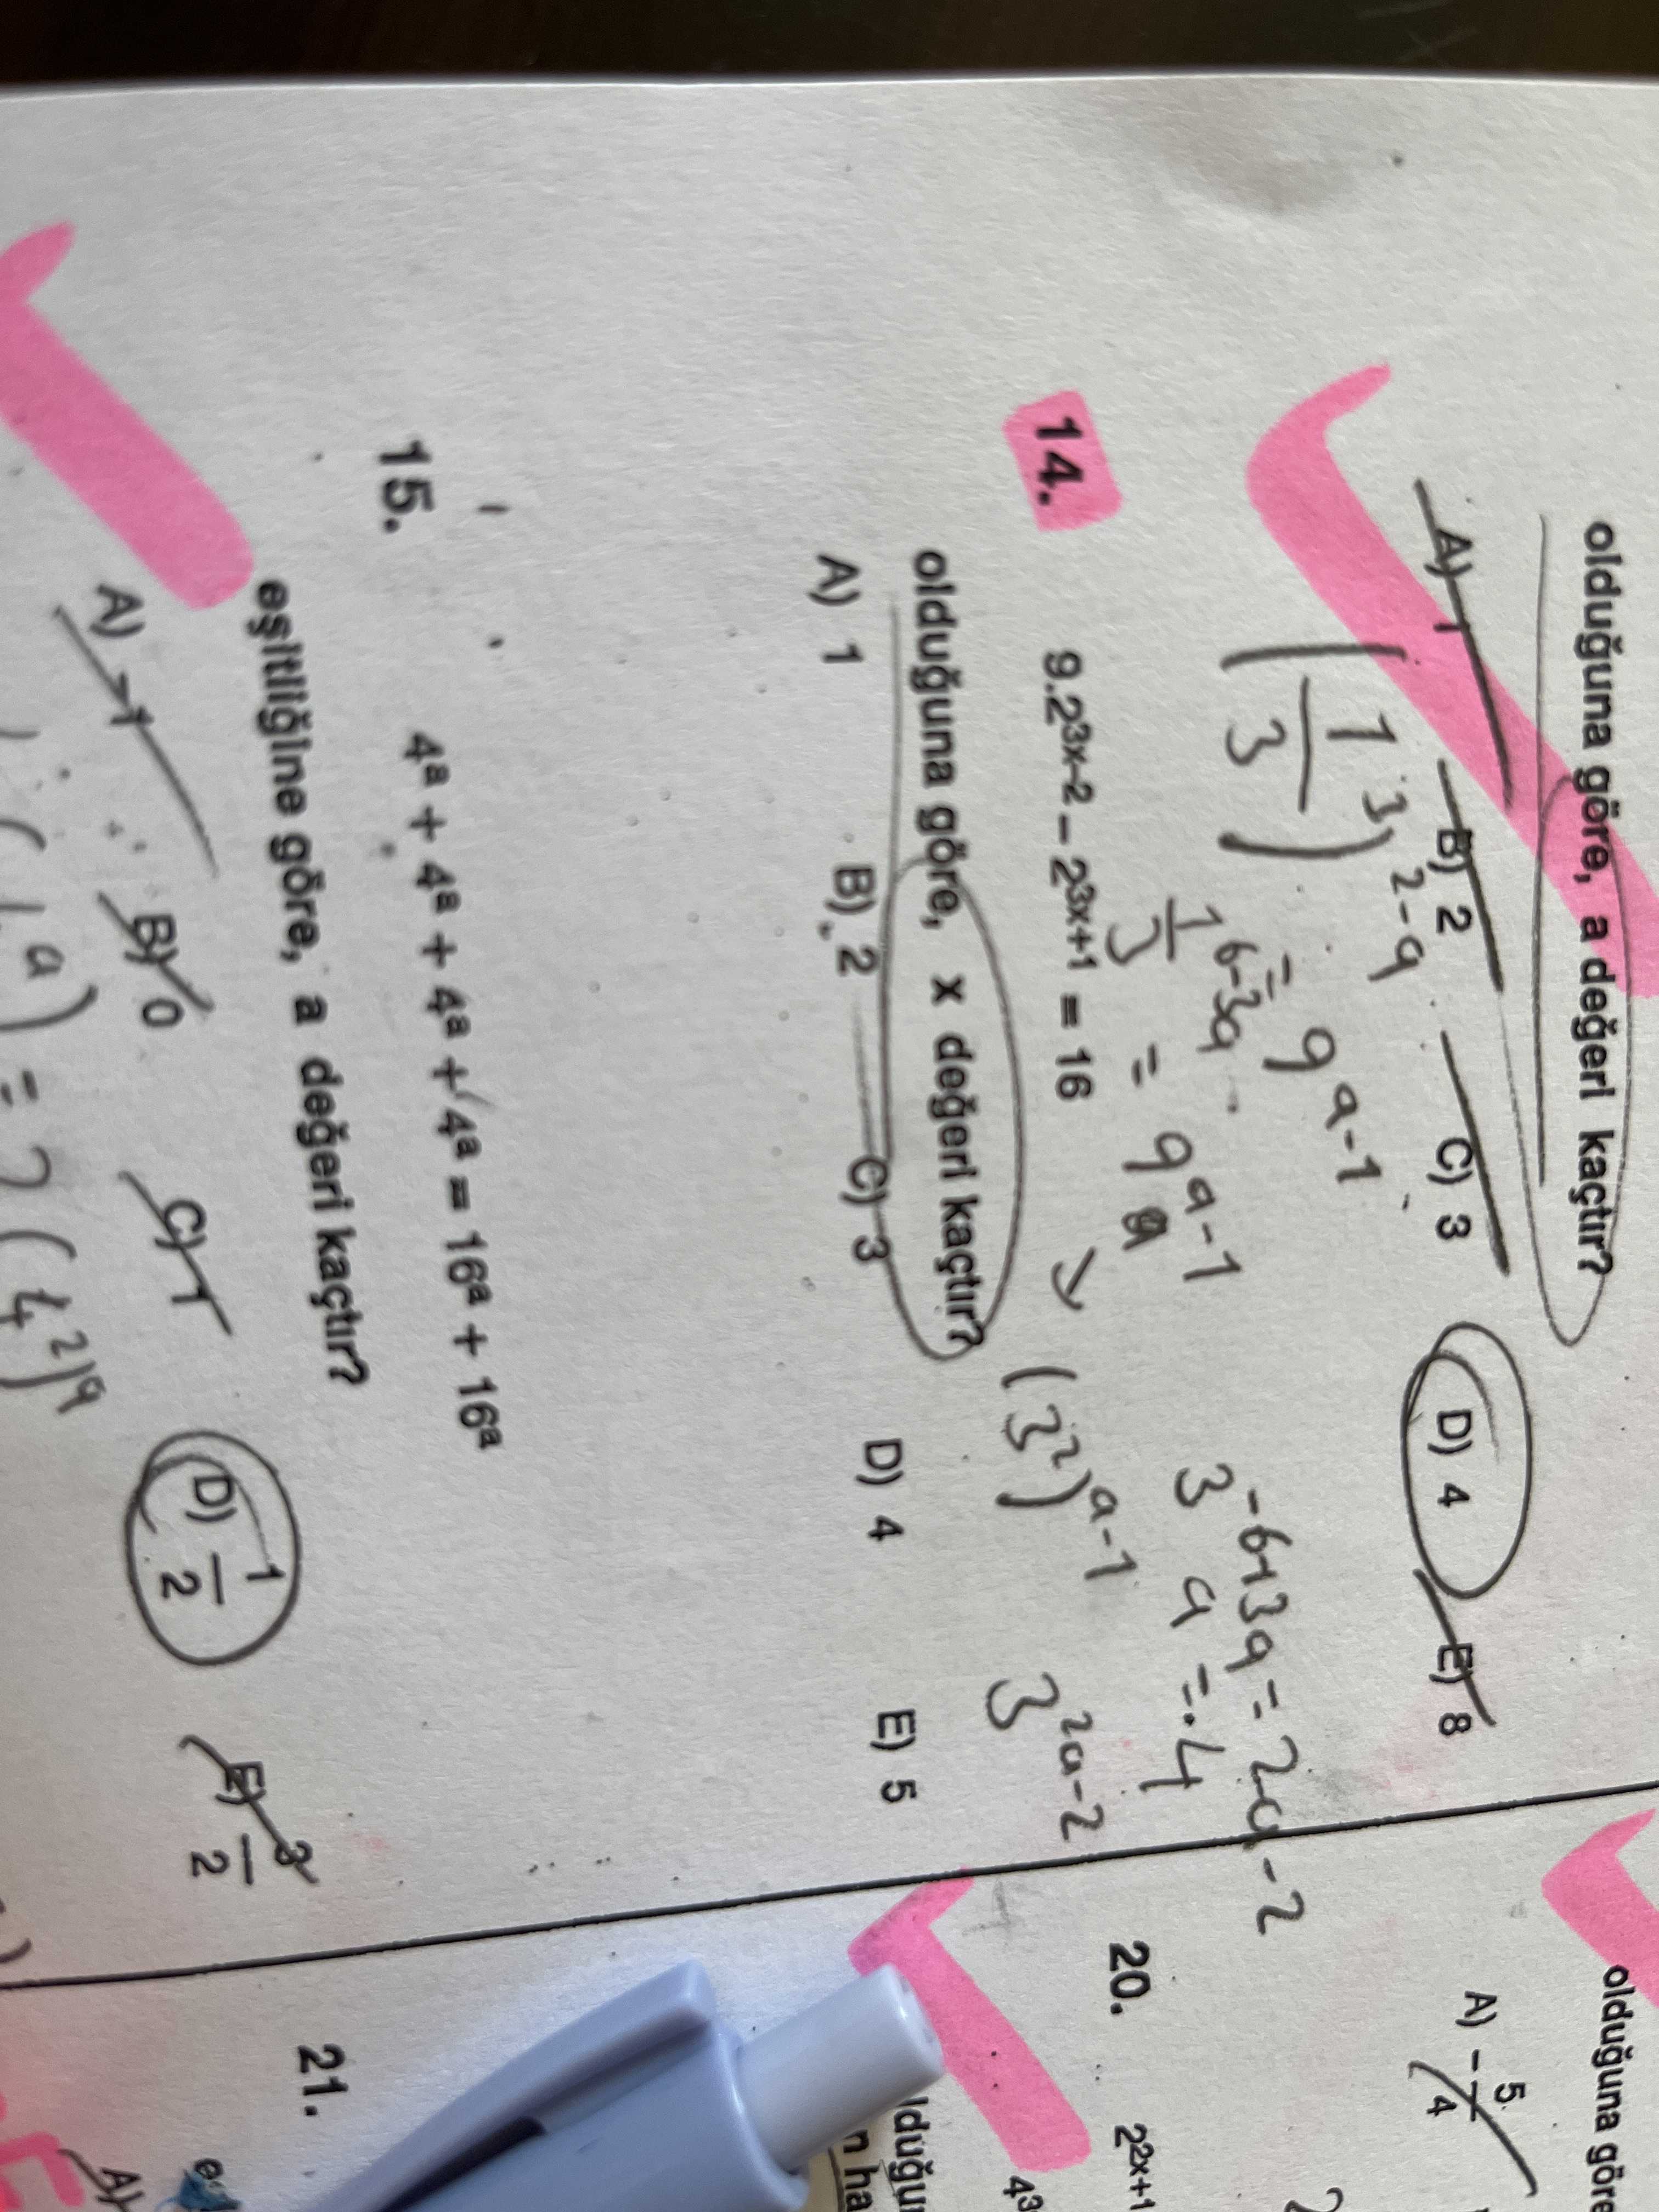 olduğuna göre, a değeri kaçtır?
A) 1 B) 2 C) 3 D) 4 E) 8
(1/3)³⁾²⁻ᵃ = 9ᵃ⁻¹
1/3 ⁶⁻³ᵃ = 9ᵃ⁻¹
3⁻⁶⁺³ᵃ = 2a-2
a = 4
(3²)ᵃ⁻¹
3²ᵃ⁻²
14. 9.2³ˣ⁻² – 2³ˣ⁺¹ = 16
olduğuna göre, x değeri kaçtır?
A) 1 B) 2 C) 3 D) 4 E) 5
15. 4ᵃ + 4ᵃ + 4ᵃ + 4ᵃ = 16ᵃ + 16ᵃ
eşitliğine göre, a değeri kaçtır?
A) -1 B) 0 C) 1 D) 1/2 E) 3/2
= 2(4²)ᵃ
olduğuna göre
A) -5/4
20. 2²ˣ⁺¹
4³
21.
A)